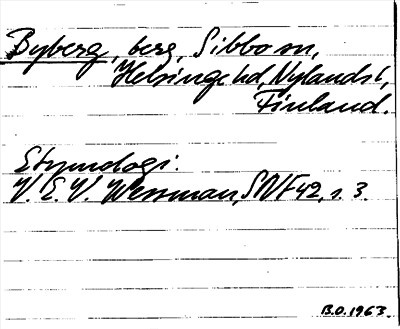 Byberg, berg, Sibbo sn,
Helsinge hd, Nylands l,
Finland.
Etymologi.
V. E. V. Wessman, SNF 42, s. 3.
B.O. 1963.